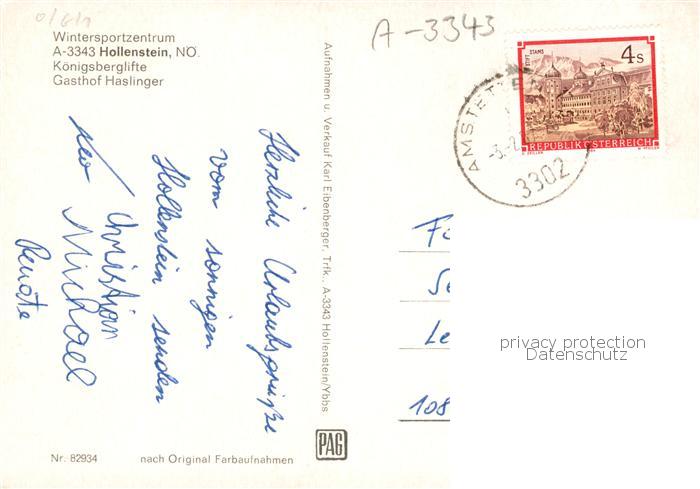 Wintersportzentrum
A-3343 Hollenstein, NÖ.
Königsberglifte
Gasthof Haslinger
A-3343
STIFT STAMS
4s
REPUBLIK ÖSTERREICH
3302
Herzliche Urlaubsgrüße
vom sonnigen
Hollenstein senden
Christian
Michael
Renate
Aufnahmen u. Verkauf Karl Eibenberger, Trfk., A-3343 Hollenstein/Ybbs.
Le
108
privacy protection
Datenschutz
PAG
Nr. 82934
nach Original Farbaufnahmen